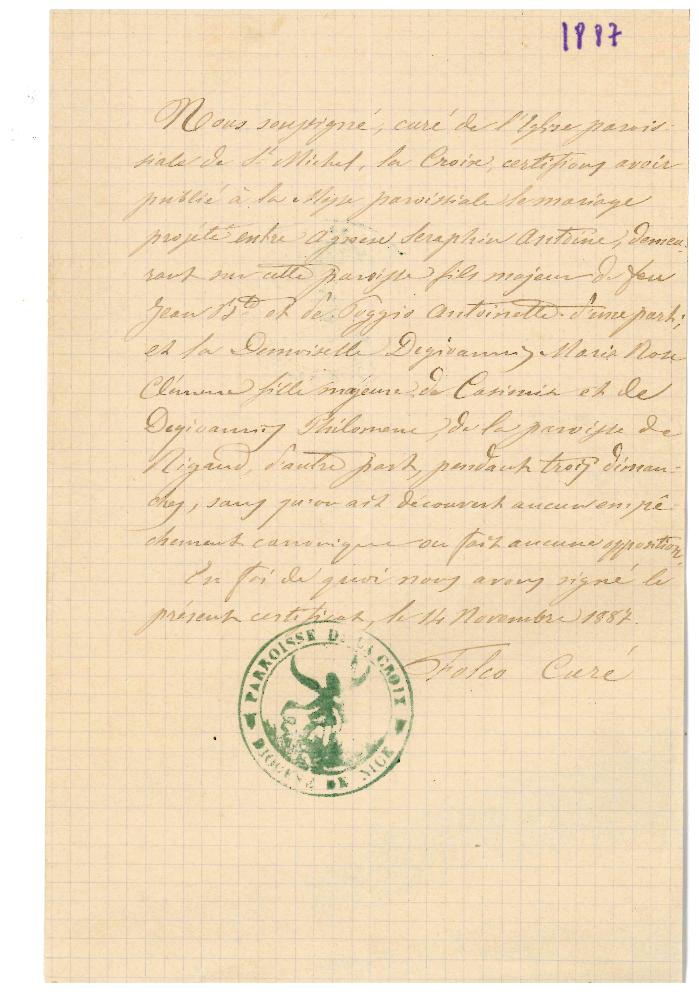 1887
Nous soussigné, curé de l'Eglise parois-
siale de St Michel, la Croix, certifions avoir
publié à la Messe paroissiale le mariage
projeté entre Agnese Seraphin Antoine, demeu-
rant sur cette paroisse fils majeur de feu
Jean Bte et de Poggio Antoinette d'une part,
et la Demoiselle Degioannis Marie Rose
fille majeure de Casimir et de
Degioannis Philomene, de la paroisse de
Rigaud, d'autre part, pendant trois diman-
ches, sans qu'on ait découvert aucun empê-
chement canonique ou fait aucune opposition
En foi de quoi nous avons signé le
présent certificat, le 14 Novembre 1887.
Folco Curé
PARROISSE DE LA CROIX
DIOCESE DE NICE